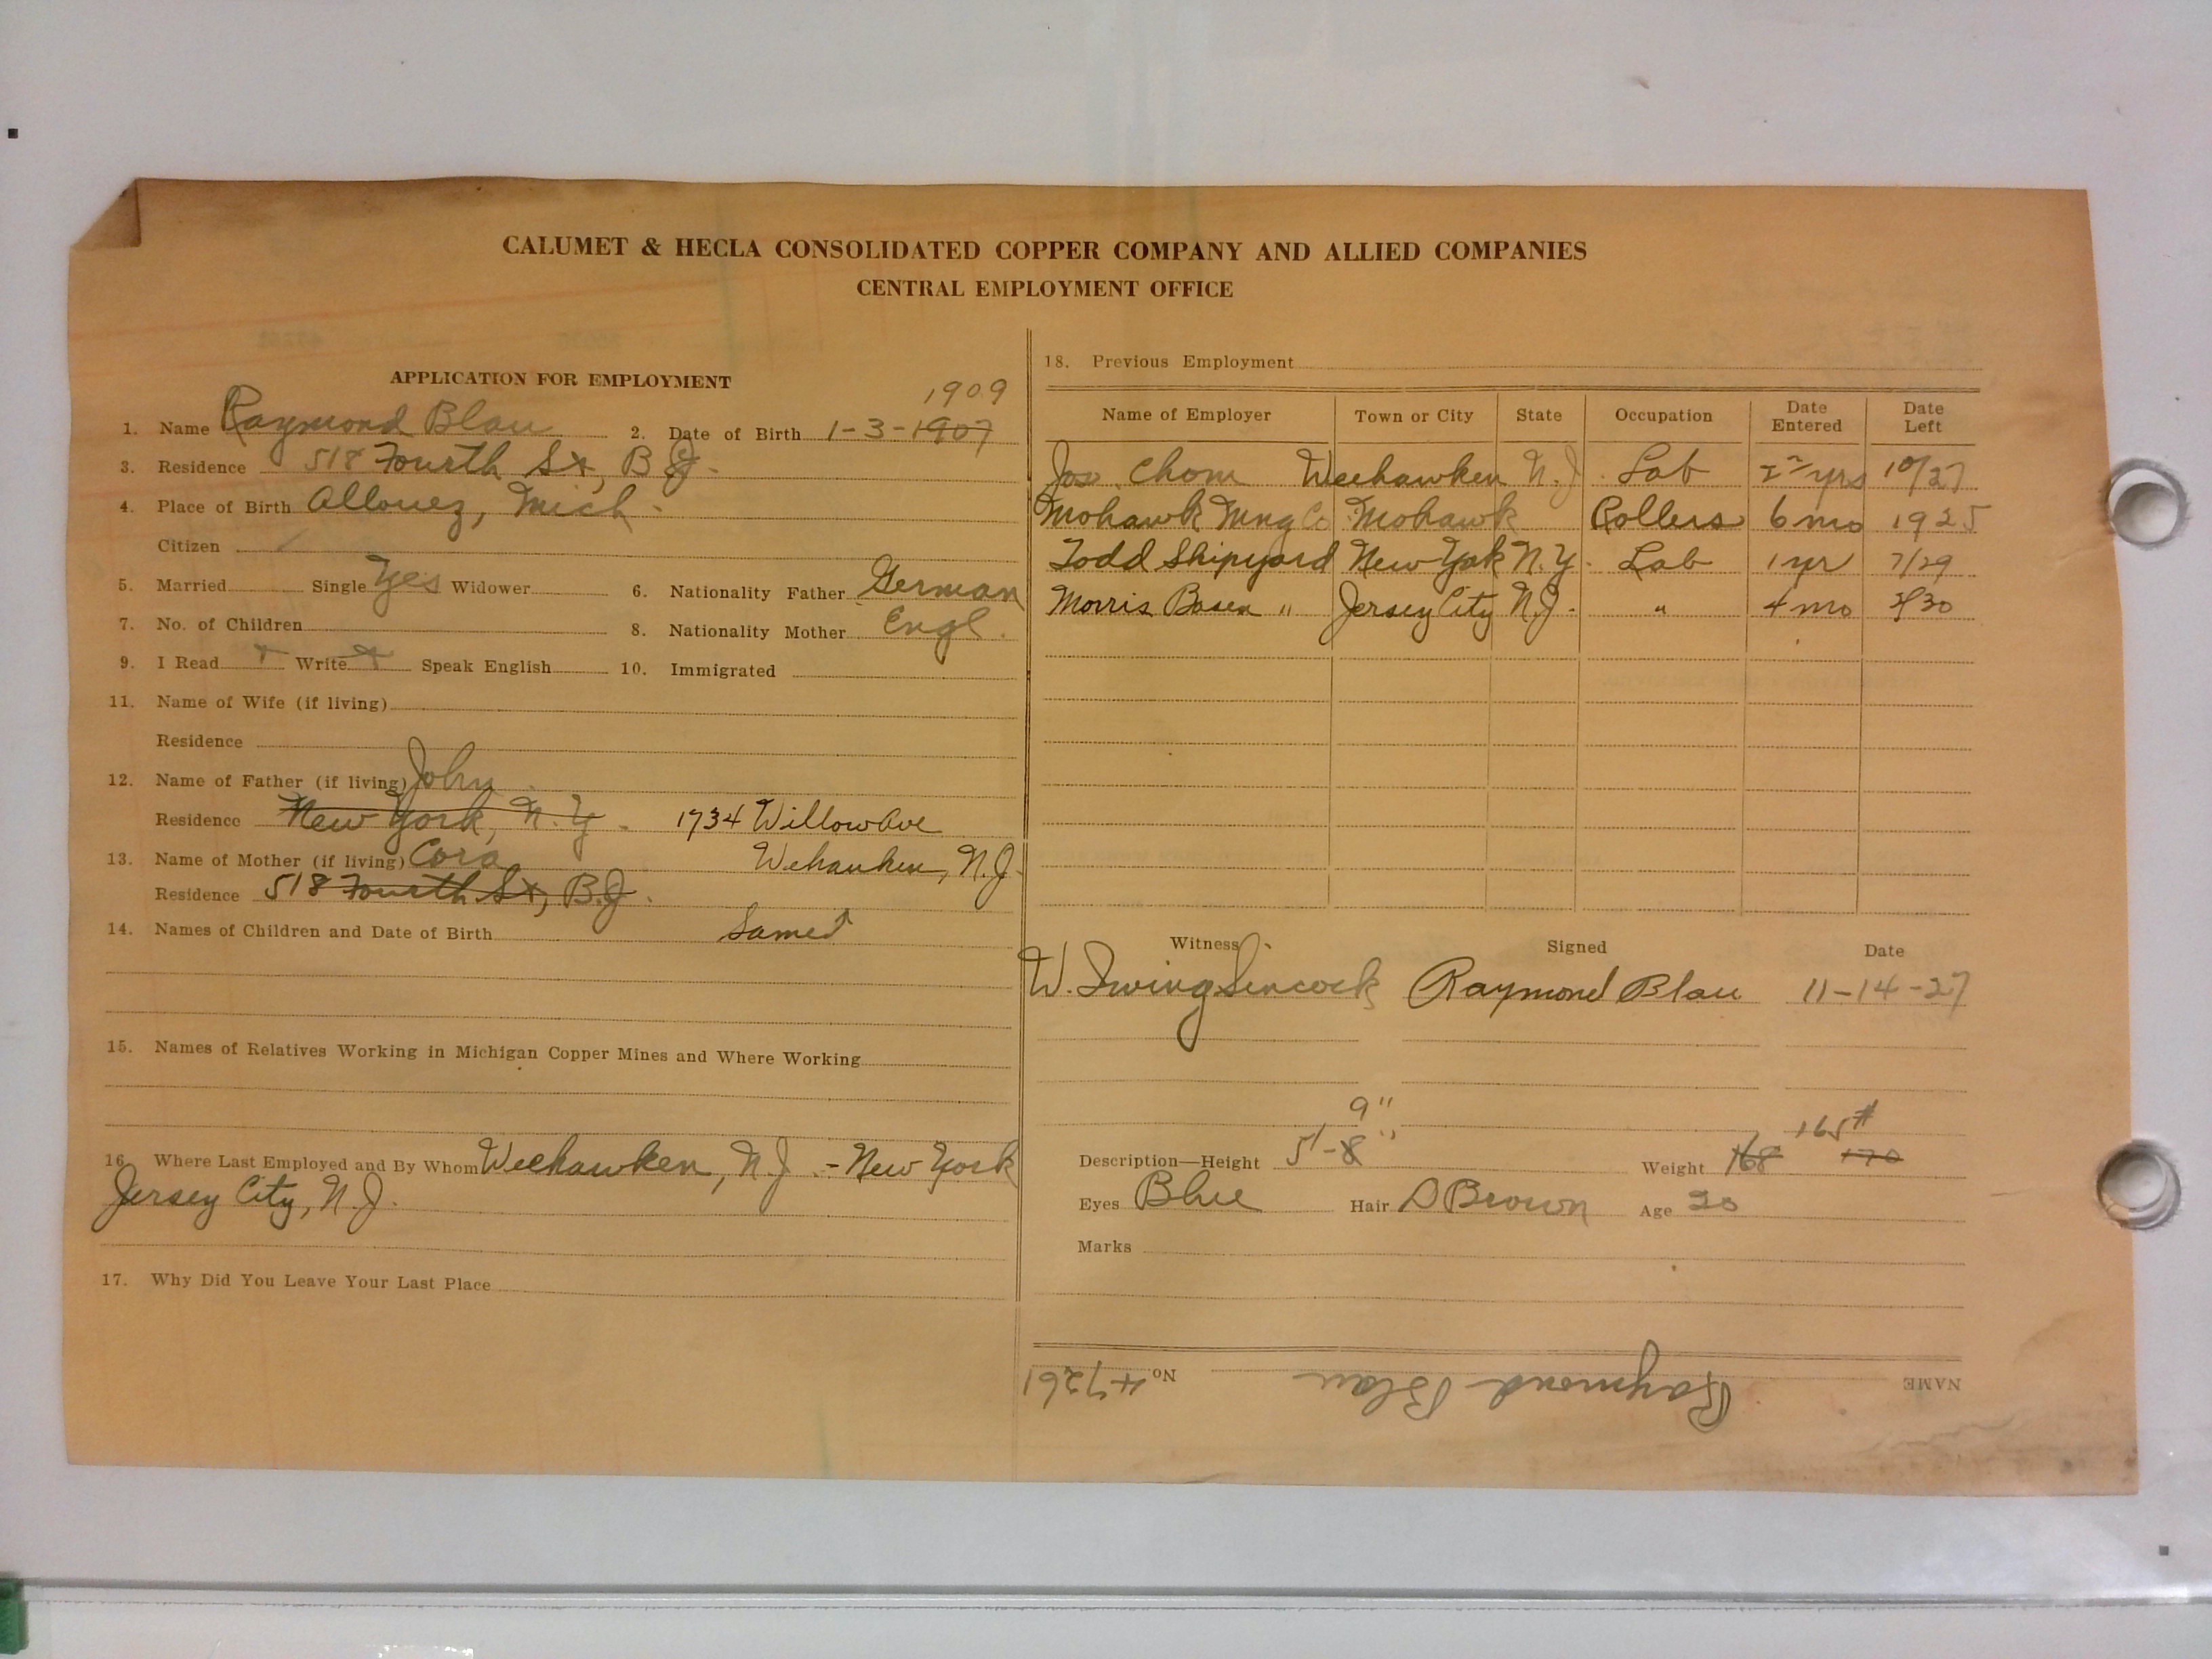 CALUMET & HECLA CONSOLIDATED COPPER COMPANY AND ALLIED COMPANIES
CENTRAL EMPLOYMENT OFFICE
APPLICATION FOR EMPLOYMENT
1909
1. Name Raymond Blau 2. Date of Birth 1-3-1907
3. Residence 518 Fourth St, B.J.
4. Place of Birth Allouez, Mich.
Citizen
5. Married Single Yes Widower 6. Nationality Father German
7. No. of Children 8. Nationality Mother Engl.
9. I Read Write Speak English 10. Immigrated
11. Name of Wife (if living)
Residence
12. Name of Father (if living) John
Residence New York, N.Y. 1734 Willow Ave
13. Name of Mother (if living) Cora Wehauken, N.J.
Residence 518 Fourth St, B.J.
14. Names of Children and Date of Birth Same
15. Names of Relatives Working in Michigan Copper Mines and Where Working
16. Where Last Employed and By Whom Weehawken, N.J. - New York
Jersey City, N.J.
17. Why Did You Leave Your Last Place
18. Previous Employment
Name of Employer Town or City State Occupation Date Entered Date Left
Jos. Chom Weehawken N.J. Lab yrs 10/27
Mohawk Mng Co Mohawk Rollers 6 mo 1925
Todd Shipyard New York N.Y. Lab 1 yr 7/29
Morris " Jersey City N.J. " 4 mo 30
Witness Signed Date
W. Irving Raymond Blau 11-14-27
9"
5'-8" 165#
Description—Height Weight 168 170
Eyes Blue Hair D Brown Age 20
Marks
NAME Raymond Blau No. 47261